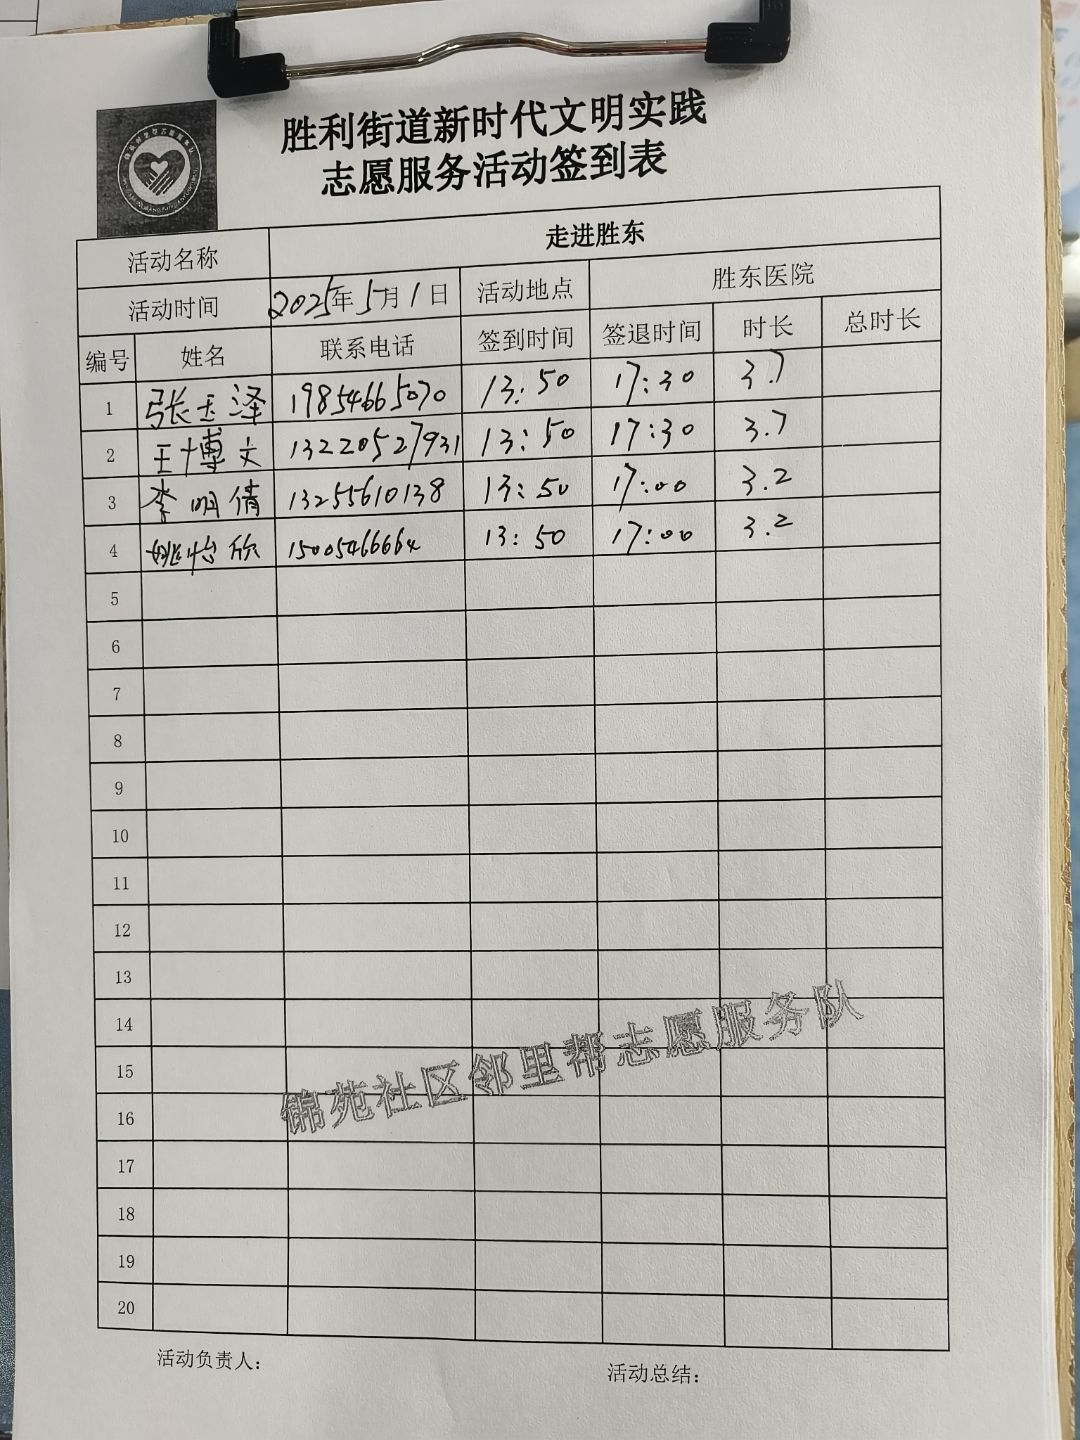 胜利街道新时代文明实践
志愿服务活动签到表
活动名称 走进胜东
活动时间 2025年5月1日 活动地点 胜东医院
编号 姓名 联系电话 签到时间 签退时间 时长 总时长
1 张玉泽 19854665070 13:50 17:30 3.7
2 王博文 13220527931 13:50 17:30 3.7
3 李明倩 13255610138 13:50 17:00 3.2
4 姚怡欣 15005466664 13:50 17:00 3.2
5
6
7
8
9
10
11
12
13
14
15
16
17
18
19
20
锦苑社区邻里帮志愿服务队
活动负责人： 活动总结：